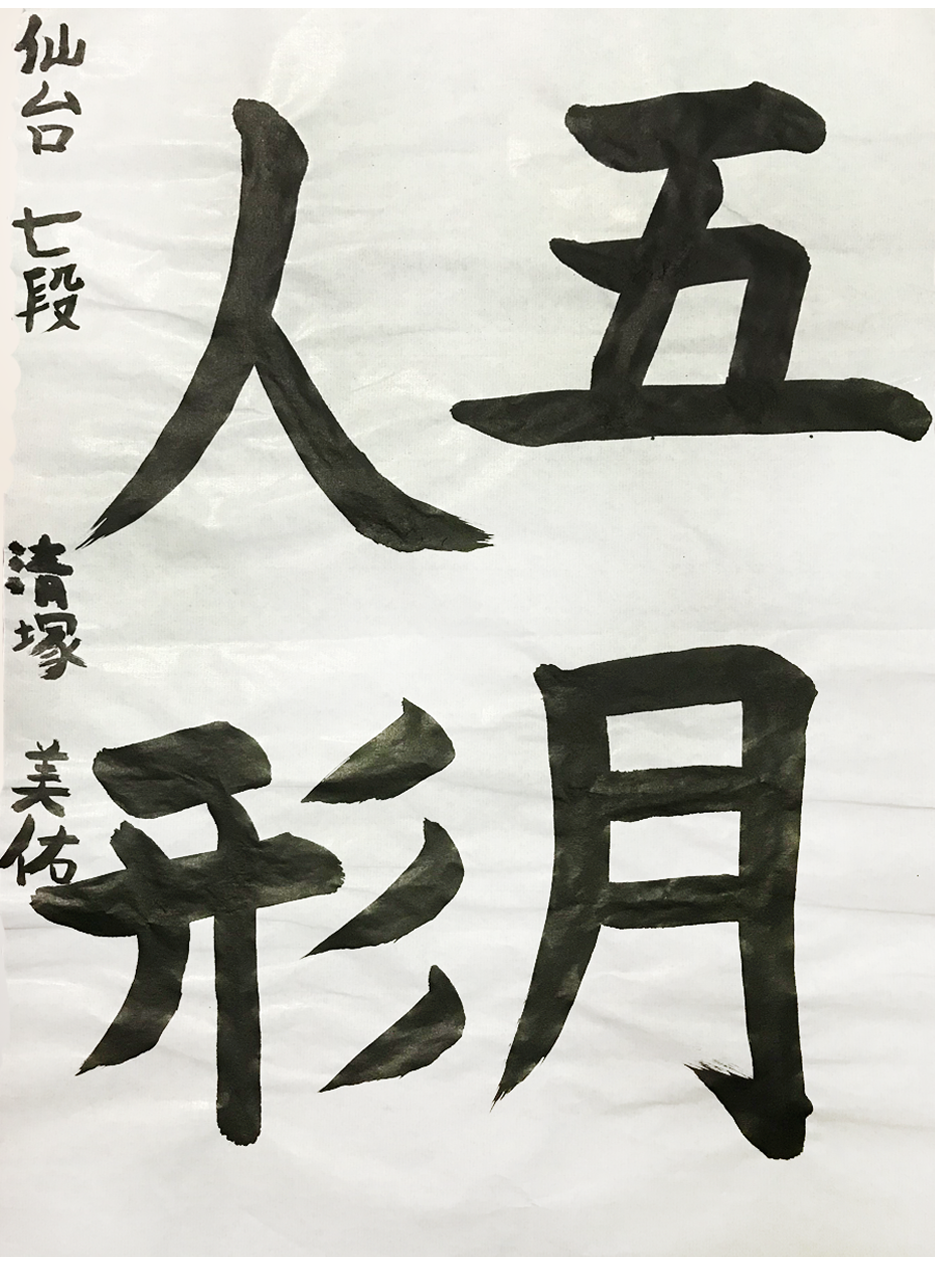 五月
人形
仙台 七段 清塚 美佑